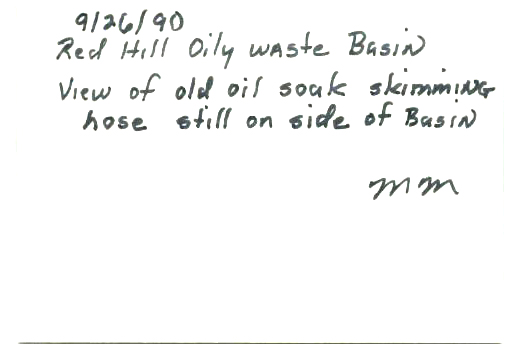 9/26/90
Red Hill Oily waste Basin
View of old oil soak skimming
hose still on side of Basin
MM